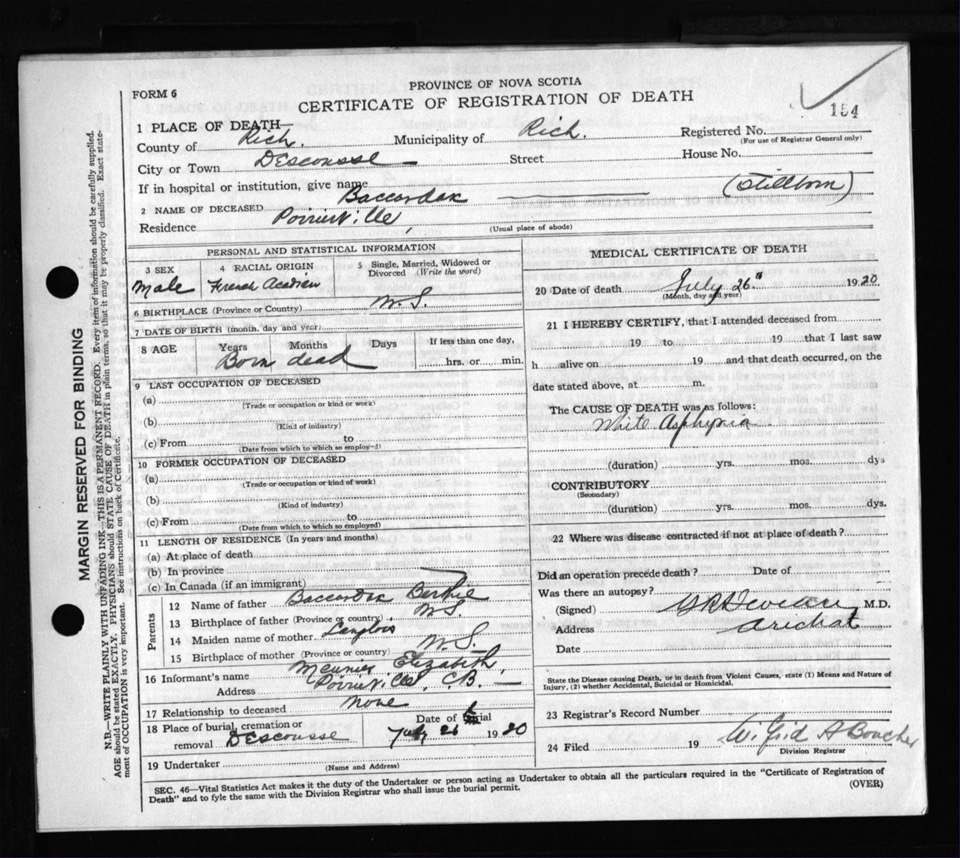 PROVINCE OF NOVA SCOTIA
FORM 6
CERTIFICATE OF REGISTRATION OF DEATH
154
1 PLACE OF DEATH—
County of Rich. Municipality of Rich. Registered No.
(For use of Registrar General only)
City or Town Descousse Street House No.
If in hospital or institution, give name
2 NAME OF DECEASED Baccardax (Stillborn)
Residence Poirierville,
(Usual place of abode)
PERSONAL AND STATISTICAL INFORMATION
3 SEX 4 RACIAL ORIGIN 5 Single, Married, Widowed or Divorced (Write the word)
Male French Acadien
6 BIRTHPLACE (Province or Country) N.S.
7 DATE OF BIRTH (month, day and year)
8 AGE Years Months Days If less than one day,
Born dead hrs. or min.
9 LAST OCCUPATION OF DECEASED
(a)
(Trade or occupation or kind or work)
(b)
(Kind of industry)
(c) From to
(Date from which to which so employed)
10 FORMER OCCUPATION OF DECEASED
(a)
(Trade or occupation or kind of work)
(b)
(Kind of industry)
(c) From to
(Date from which to which so employed)
11 LENGTH OF RESIDENCE (In years and months)
(a) At place of death
(b) In province
(c) In Canada (if an immigrant)
Parents
12 Name of father Baccardax
13 Birthplace of father (Province or country) N.S.
14 Maiden name of mother Langlois
15 Birthplace of mother (Province or country) N.S.
16 Informant's name Meunier Elizabeth,
Address Poirierville, C.B.
17 Relationship to deceased None
18 Place of burial, cremation or removal Descousse Date of burial July 26 1920
19 Undertaker
(Name and Address)
MEDICAL CERTIFICATE OF DEATH
20 Date of death July 26" 1920
(Month, day and year)
21 I HEREBY CERTIFY, that I attended deceased from
19 to 19 that I last saw
h alive on 19 and that death occurred, on the
date stated above, at m.
The CAUSE OF DEATH was as follows:
White Asphyxia
(duration) yrs. mos. dys
CONTRIBUTORY
(Secondary)
(duration) yrs. mos. dys.
22 Where was disease contracted if not at place of death?
Did an operation precede death? Date of
Was there an autopsy?
(Signed) M.D.
Address Arichat
Date
State the Disease causing Death, or in death from Violent Causes, state (1) Means and Nature of
Injury, (2) whether Accidental, Suicidal or Homicidal.
23 Registrar's Record Number
24 Filed 19 Wilfrid A Boucher
Division Registrar
SEC. 46—Vital Statistics Act makes it the duty of the Undertaker or person acting as Undertaker to obtain all the particulars required in the "Certificate of Registration of
Death" and to fyle the same with the Division Registrar who shall issue the burial permit.
(OVER)
MARGIN RESERVED FOR BINDING
N.B.—WRITE PLAINLY WITH UNFADING INK—THIS IS A PERMANENT RECORD. Every item of information should be carefully supplied.
AGE should be stated EXACTLY. PHYSICIANS should STATE CAUSE OF DEATH in plain terms, so that it may be properly classified. Exact state-
ment of OCCUPATION is very important. See instructions on back of Certificate.